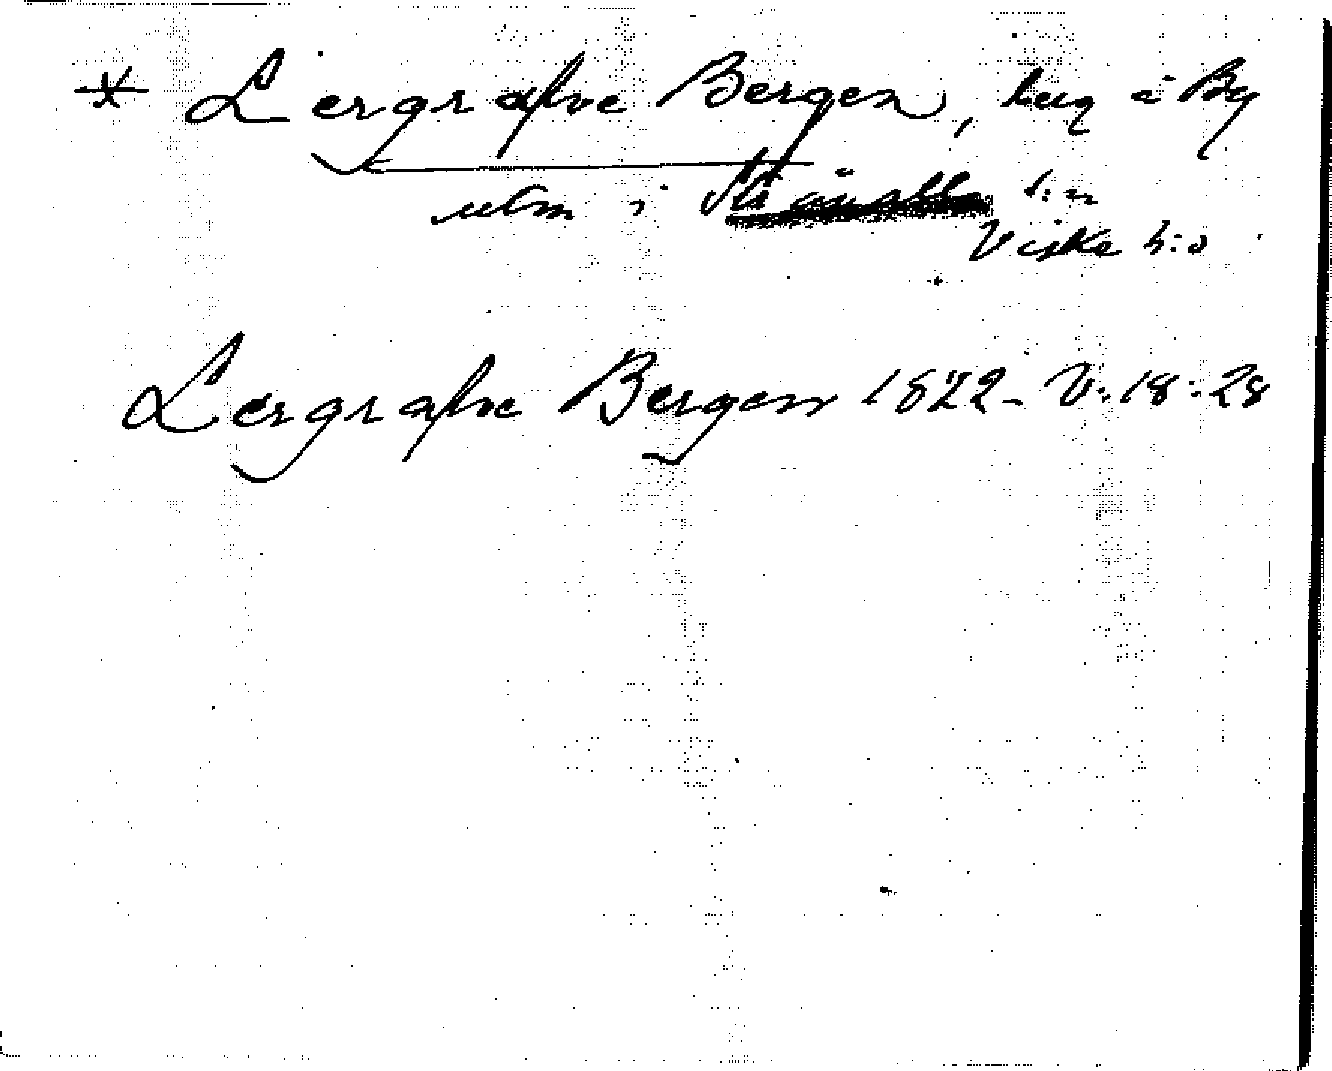 * Lergrafve Bergen, läg. å By
utm i
Viske h:d
Lergrafve Bergen 1822 - V: 18: 28